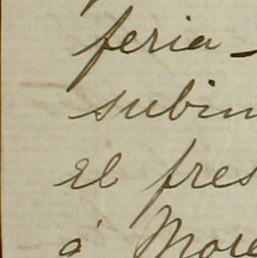 feria -
subim
el fres
á More